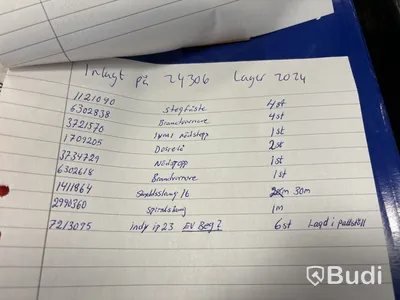 Inlagt på 24306 Lager 2024
1121040 Stegfäste 4st
6302838 Brandvarnare 4st
3721570 nödstopp 1st
1709205 Dosrelä 2st
3734729 Nödstopp 1st
6302618 Brandvarnare 1st
1411864 Skyddsslang 16 30m
2990360 Spiralslang 1m
7213075 indy ip23 EV Beg? 6st Lagd i pallställ
Budi